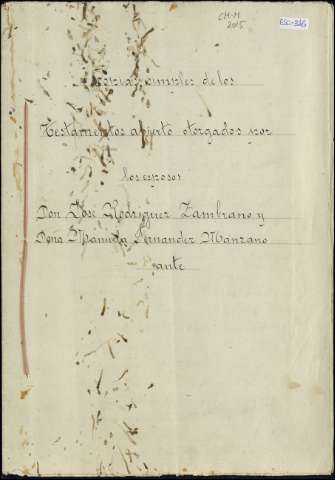 CM-M
2015
ESC-346
Copias simples de los
Testamentos abierto otorgados por
los esposos
Don José Rodriguez Zambrano y
Dona Manuela Fernandez Manzano
ante